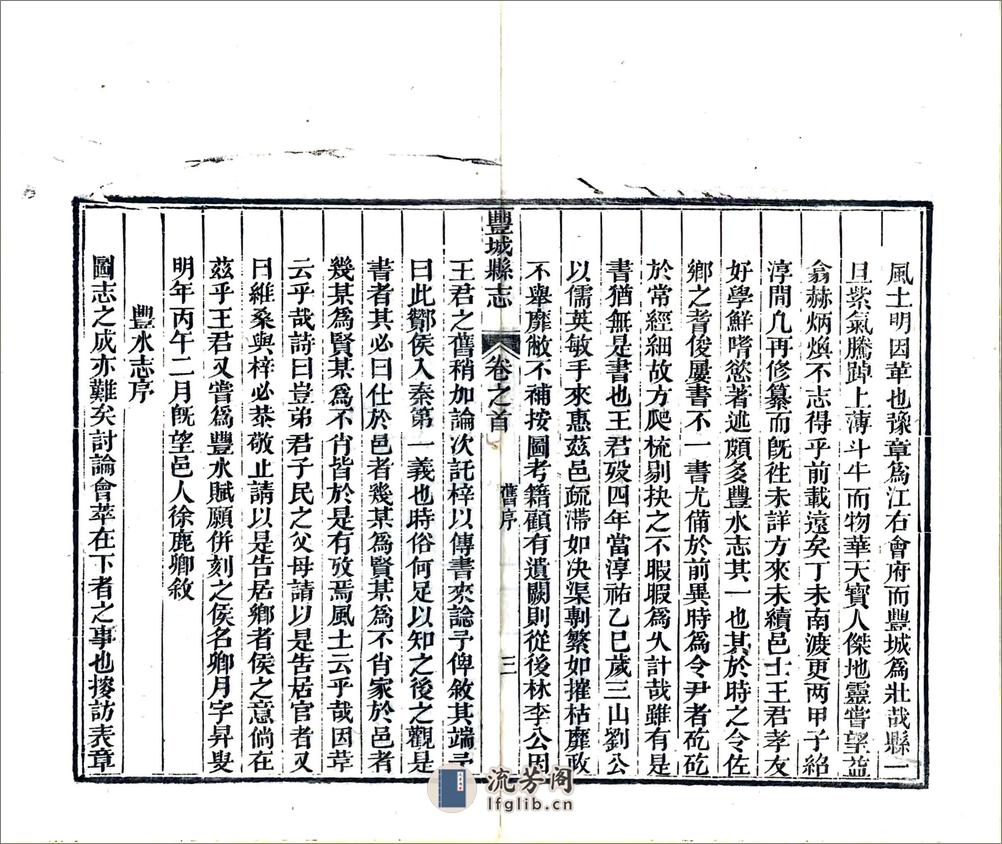 風土明因革也豫章為江右會府而豐城為壯哉縣一
旦紫氣騰踔上薄斗牛而物華天寶人傑地靈嘗望益
翕赫炳煥不志得乎前載遠矣丁未南渡更两甲子紹
淳間凢再修纂而旣徃未詳方來未續邑士王君孝友
好學鮮嗜慾著述頗多豐水志其一也其於時之令佐
鄉之耆俊屢書不一書尤備於前異時為令尹者矻矻
於常經細故方爬梳剔抉之不暇暇為乆計哉雖有是
書猶無是書也王君歿四年當淳祐乙巳歲三山劉公
以儒英敏手來惠茲邑疏滯如决渠剸繁如摧枯靡政
不舉靡敝不補按圖考籍顧有遺闕則從後林李公因
豐城縣志 卷之首 舊序 三
王君之舊稍加論次託梓以傳書來諗予俾敘其端予
曰此酇侯入秦第一義也時俗何足以知之後之觀是
書者其必曰仕於邑者幾某為賢某為不肖家於邑者
幾某為賢某為不肖皆於是有攷焉風土云乎哉因革
云乎哉詩曰豈弟君子民之父母請以是告居官者又
曰維桑與梓必恭敬止請以是告居鄉者侯之意倘在
茲乎王君又嘗為豐水賦願併刻之侯名卿月字昇叟
明年丙午二月旣望邑人徐鹿卿敘
豐水志序
圖志之成亦難矣討論會萃在下者之事也搜訪表章
流芳阁
lfglib.cn